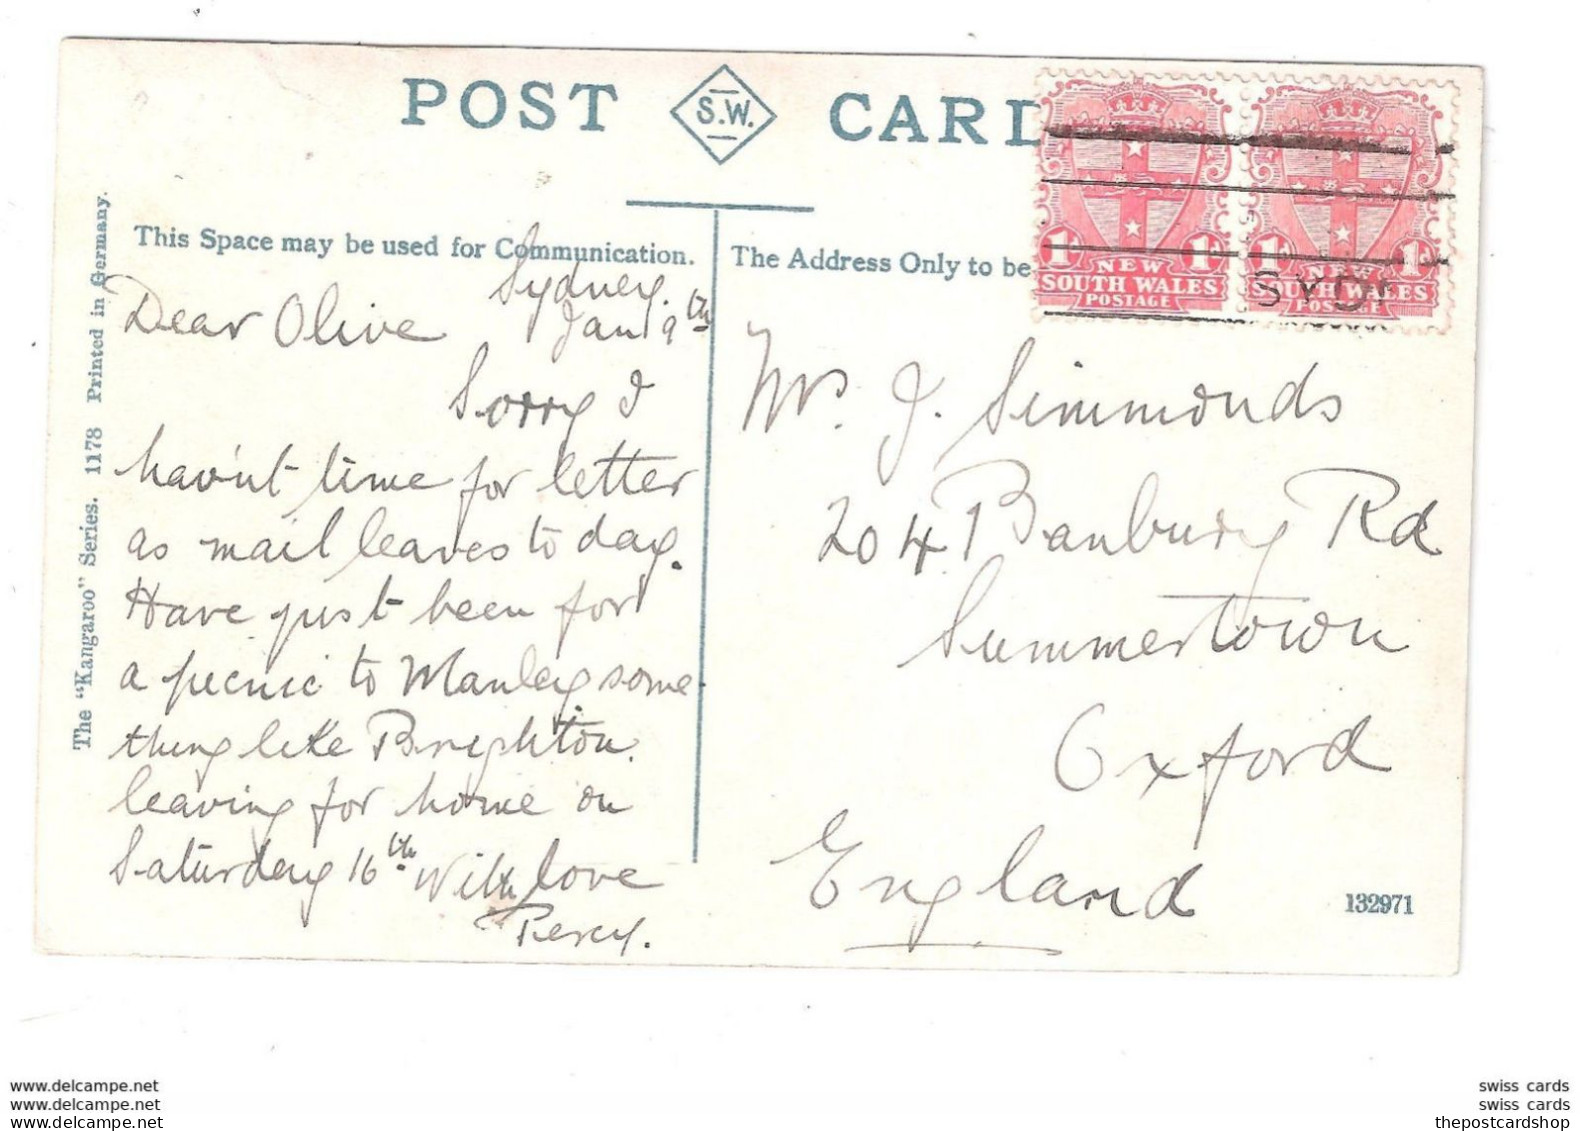 POST S.W. CARD
This Space may be used for Communication.
The Address Only to be
The "Kangaroo" Series. 1178 Printed in Germany.
1d 1d
NEW
SOUTH WALES
POSTAGE
1d 1d
NEW
SOUTH WALES
POSTAGE
SYD
Sydney.
Jan 9th
Dear Olive
Sorry I
hav'nt time for letter
as mail leaves to day.
Have just been for
a picnic to Manley some
thing like Brighton.
leaving for home on
Saturday 16th With love
Percy.
Mrs J. Simmonds
204 Banbury Rd
Summertown
Oxford
England
132971
www.delcampe.net
www.delcampe.net
www.delcampe.net
swiss cards
swiss cards
thepostcardshop